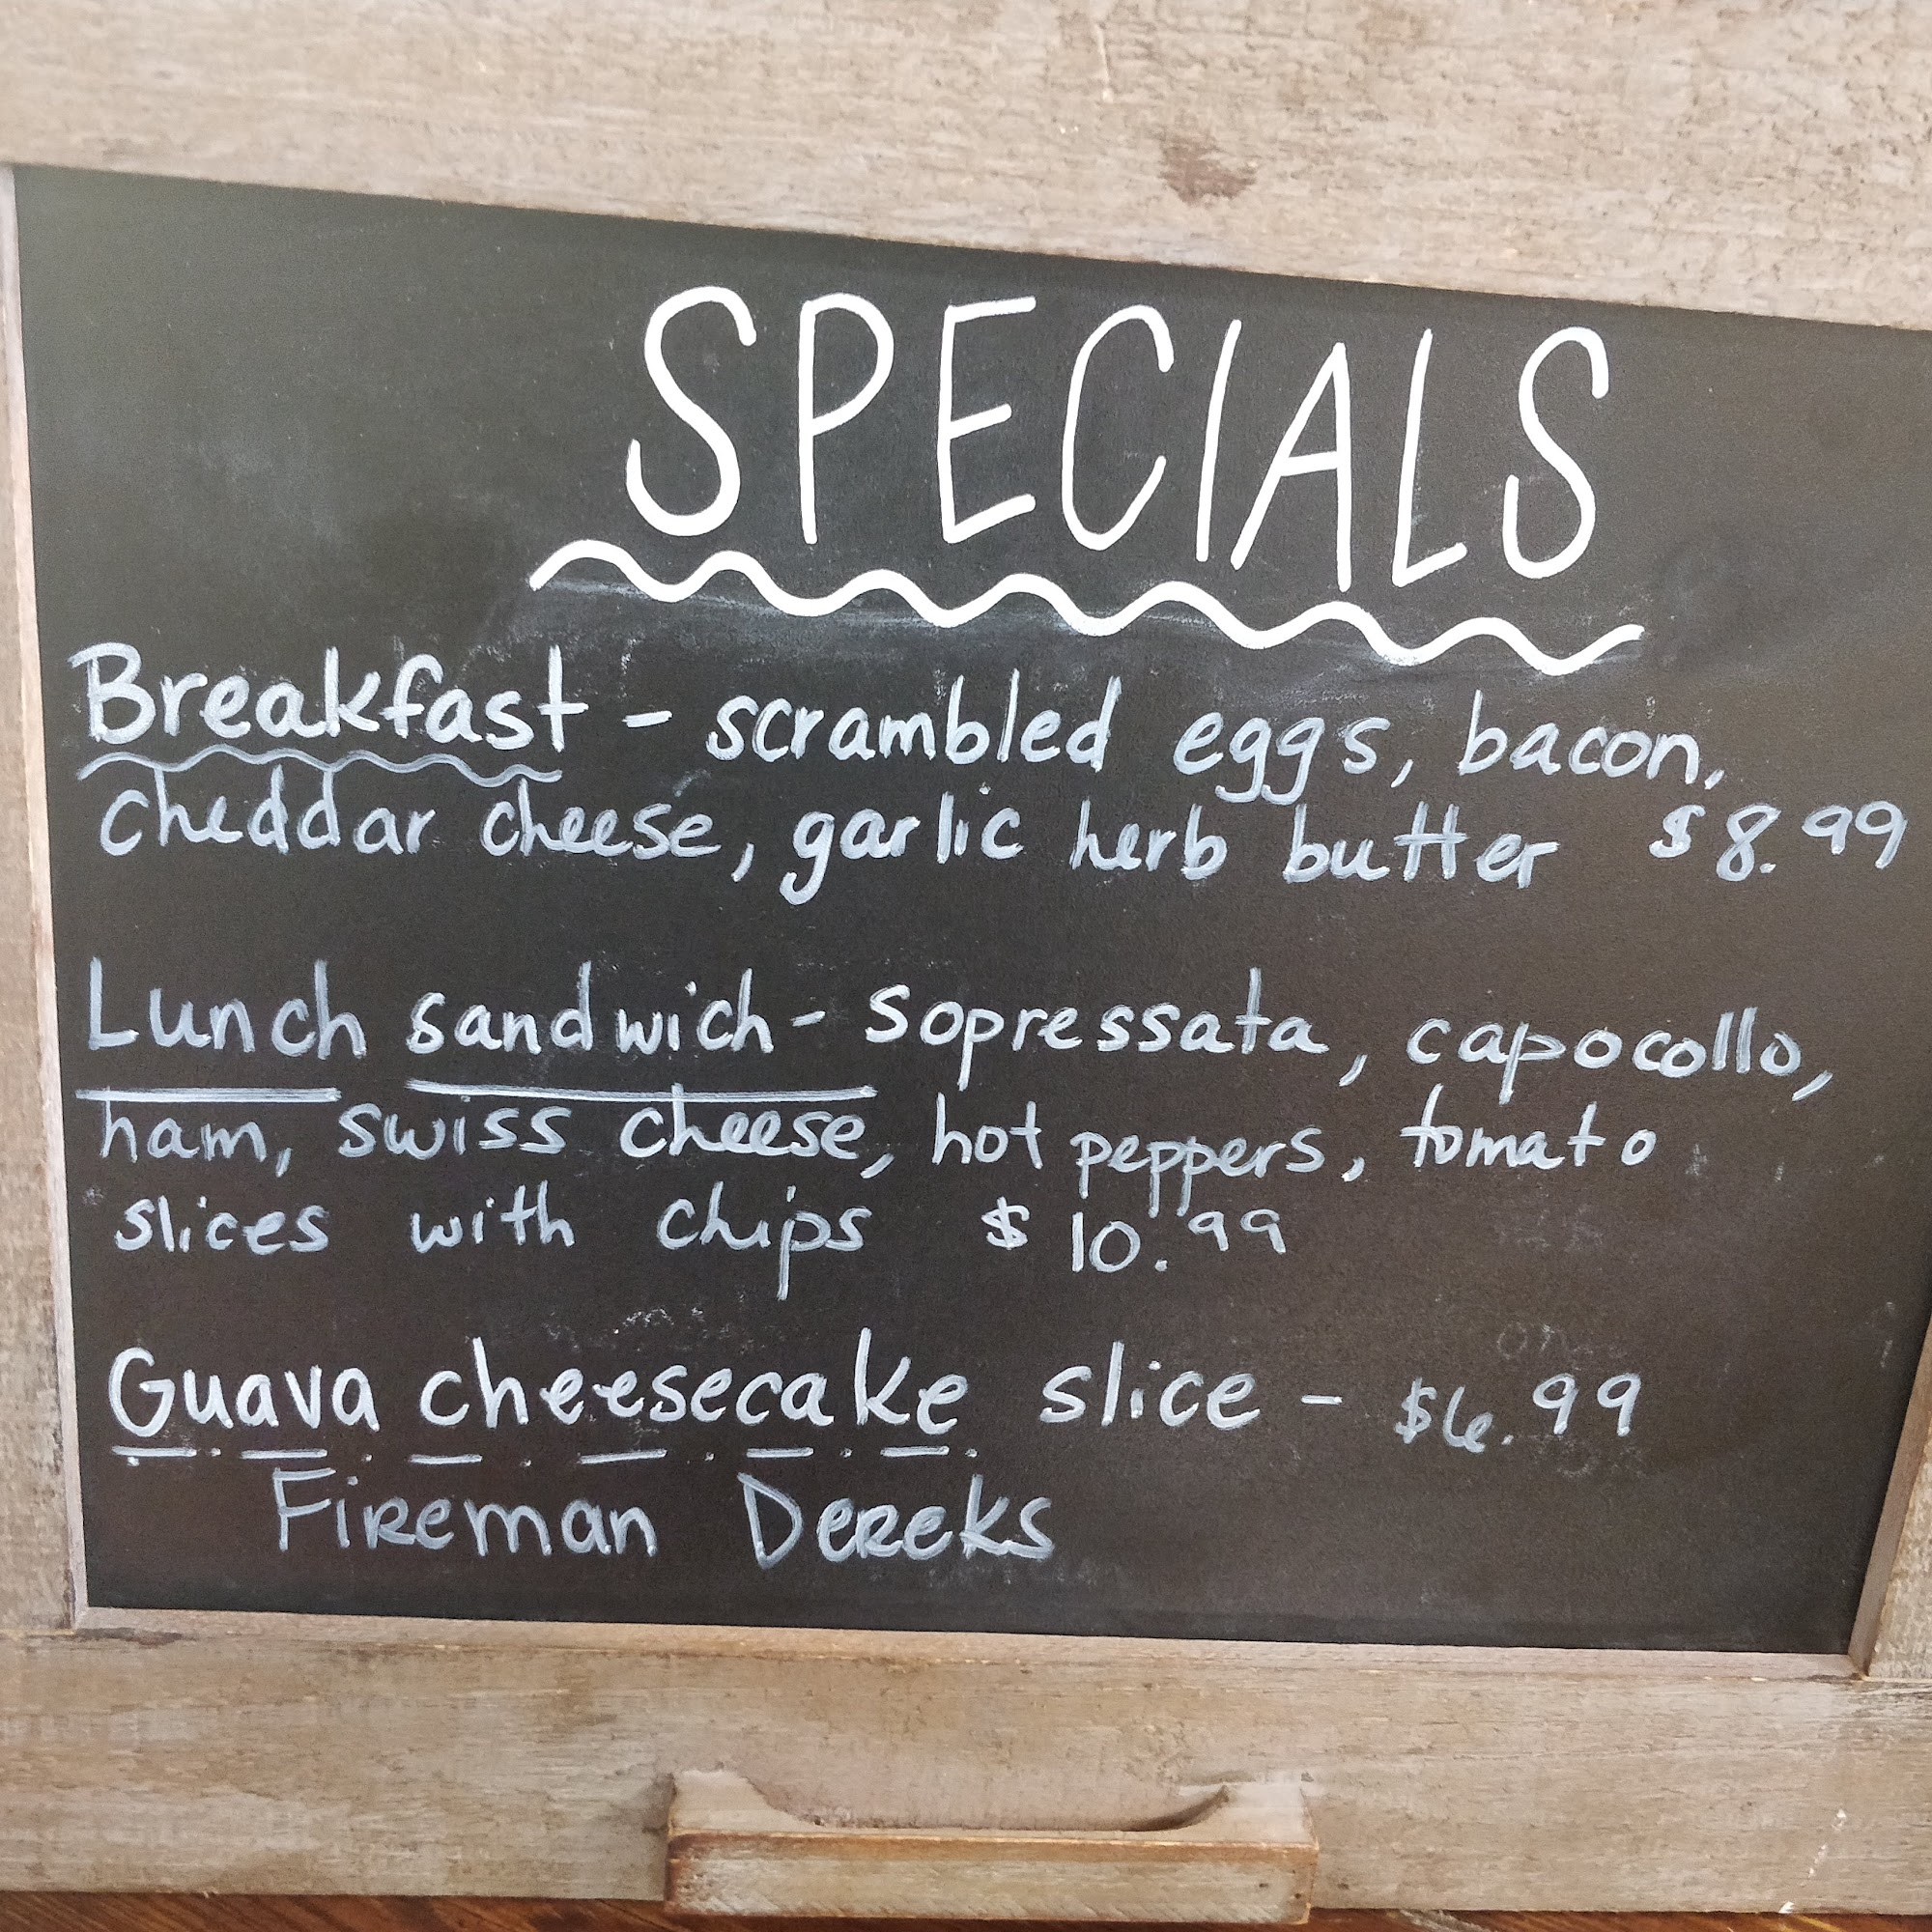 SPECIALS
Breakfast - scrambled eggs, bacon,
cheddar cheese, garlic herb butter $8.99
Lunch sandwich - sopressata, capocollo,
ham, swiss cheese, hot peppers, tomato
slices with chips $10.99
Guava cheesecake slice - $6.99
Fireman Dereks